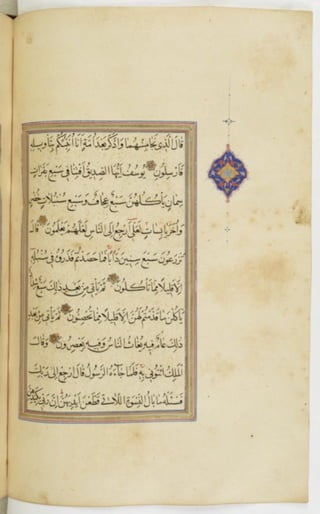 قَالَ الَّذِي نَجَا مِنْهُمَا وَادَّكَرَ بَعْدَ اُمَّةٍ اَنَا اُنَبِّئُكُمْ بِتَاْوِيلِهِ
فَاَرْسِلُونِ يُوسُفُ اَيُّهَا الصِّدِّيقُ اَفْتِنَا فِي سَبْعِ بَقَرَاتٍ
سِمَانٍ يَاْكُلُهُنَّ سَبْعٌ عِجَافٌ وَسَبْعِ سُنْبُلَاتٍ خُضْرٍ
وَاُخَرَ يَابِسَاتٍ لَعَلِّي اَرْجِعُ اِلَى النَّاسِ لَعَلَّهُمْ يَعْلَمُونَ قَالَ
تَزْرَعُونَ سَبْعَ سِنِينَ دَاَبًا فَمَا حَصَدْتُمْ فَذَرُوهُ فِي سُنْبُلِهِ
اِلَّا قَلِيلًا مِمَّا تَاْكُلُونَ ثُمَّ يَاْتِي مِنْ بَعْدِ ذٰلِكَ سَبْعٌ شِدَادٌ
يَاْكُلْنَ مَا قَدَّمْتُمْ لَهُنَّ اِلَّا قَلِيلًا مِمَّا تُحْصِنُونَ ثُمَّ يَاْتِي مِنْ بَعْدِ
ذٰلِكَ عَامٌ فِيهِ يُغَاثُ النَّاسُ وَفِيهِ يَعْصِرُونَ وَقَالَ
الْمَلِكُ ائْتُونِي بِهِ فَلَمَّا جَاءَهُ الرَّسُولُ قَالَ ارْجِعْ اِلَى رَبِّكَ
فَسْئَلْهُ مَا بَالُ النِّسْوَةِ اللَّاتِي قَطَّعْنَ اَيْدِيَهُنَّ اِنَّ رَبِّي بِكَيْدِهِنَّ